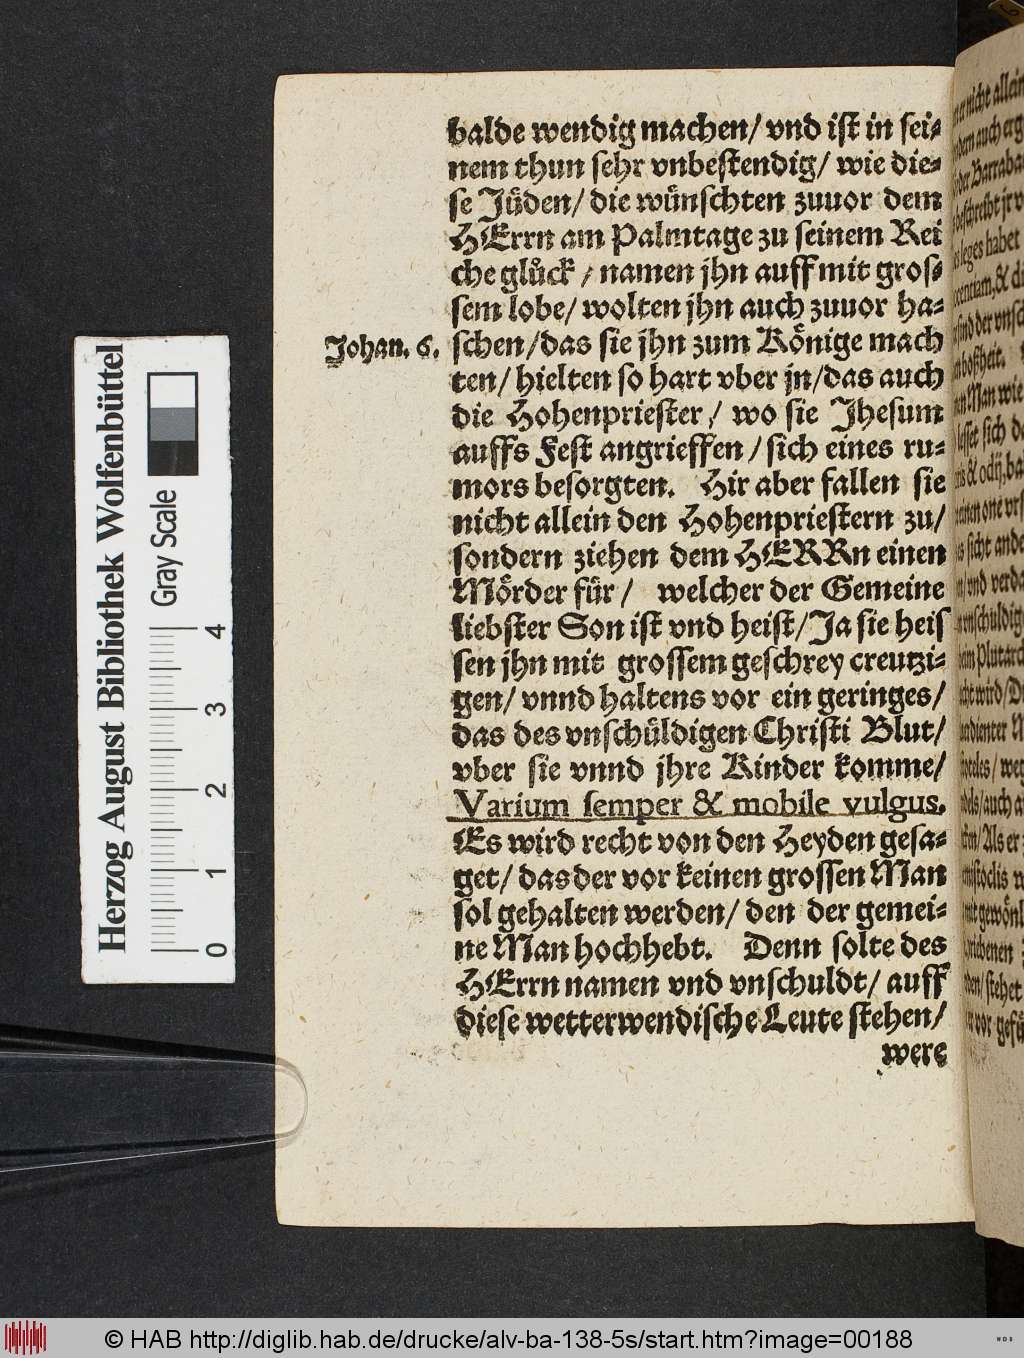 balde wendig machen/ vnd ist in sei-
nem thun sehr vnbestendig/ wie die-
se Jüden/ die wünschten zuuor dem
HErrn am Palmtage zu seinem Rei
che glück / namen jhn auff mit gros-
sem lobe/ wolten jhn auch zuuor ha-
Johan. 6. schen/das sie jhn zum Könige mach
ten/ hielten so hart vber jn/das auch
die Hohenpriester/ wo sie Jhesum
auffs Fest angrieffen / sich eines ru-
mors besorgten. Hir aber fallen sie
nicht allein den Hohenpriestern zu/
sondern ziehen dem HERRn einen
Mörder für/ welcher der Gemeine
liebster Son ist vnd heist/Ja sie heis
sen jhn mit grossem geschrey creutzi-
gen/ vnnd haltens vor ein geringes/
das des vnschüldigen Christi Blut/
vber sie vnnd jhre Kinder komme/
Varium semper & mobile vulgus.
Es wird recht von den Heyden gesa-
get/ das der vor keinen grossen Man
sol gehalten werden/ den der gemei-
ne Man hochhebt. Denn solte des
HErrn namen vnd vnschuldt/ auff
diese wetterwendische Leute stehen/
were
Herzog August Bibliothek Wolfenbüttel
Gray Scale
0 1 2 3 4
© HAB http://diglib.hab.de/drucke/alv-ba-138-5s/start.htm?image=00188